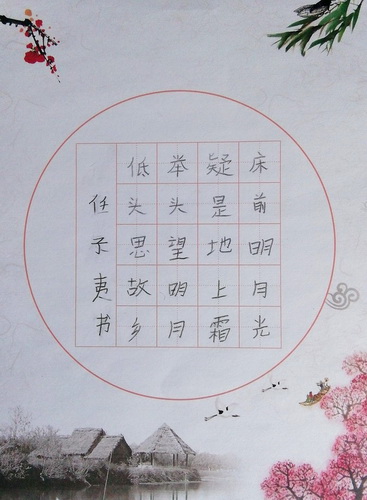 床前明月光
疑是地上霜
举头望明月
低头思故乡
任予夷书